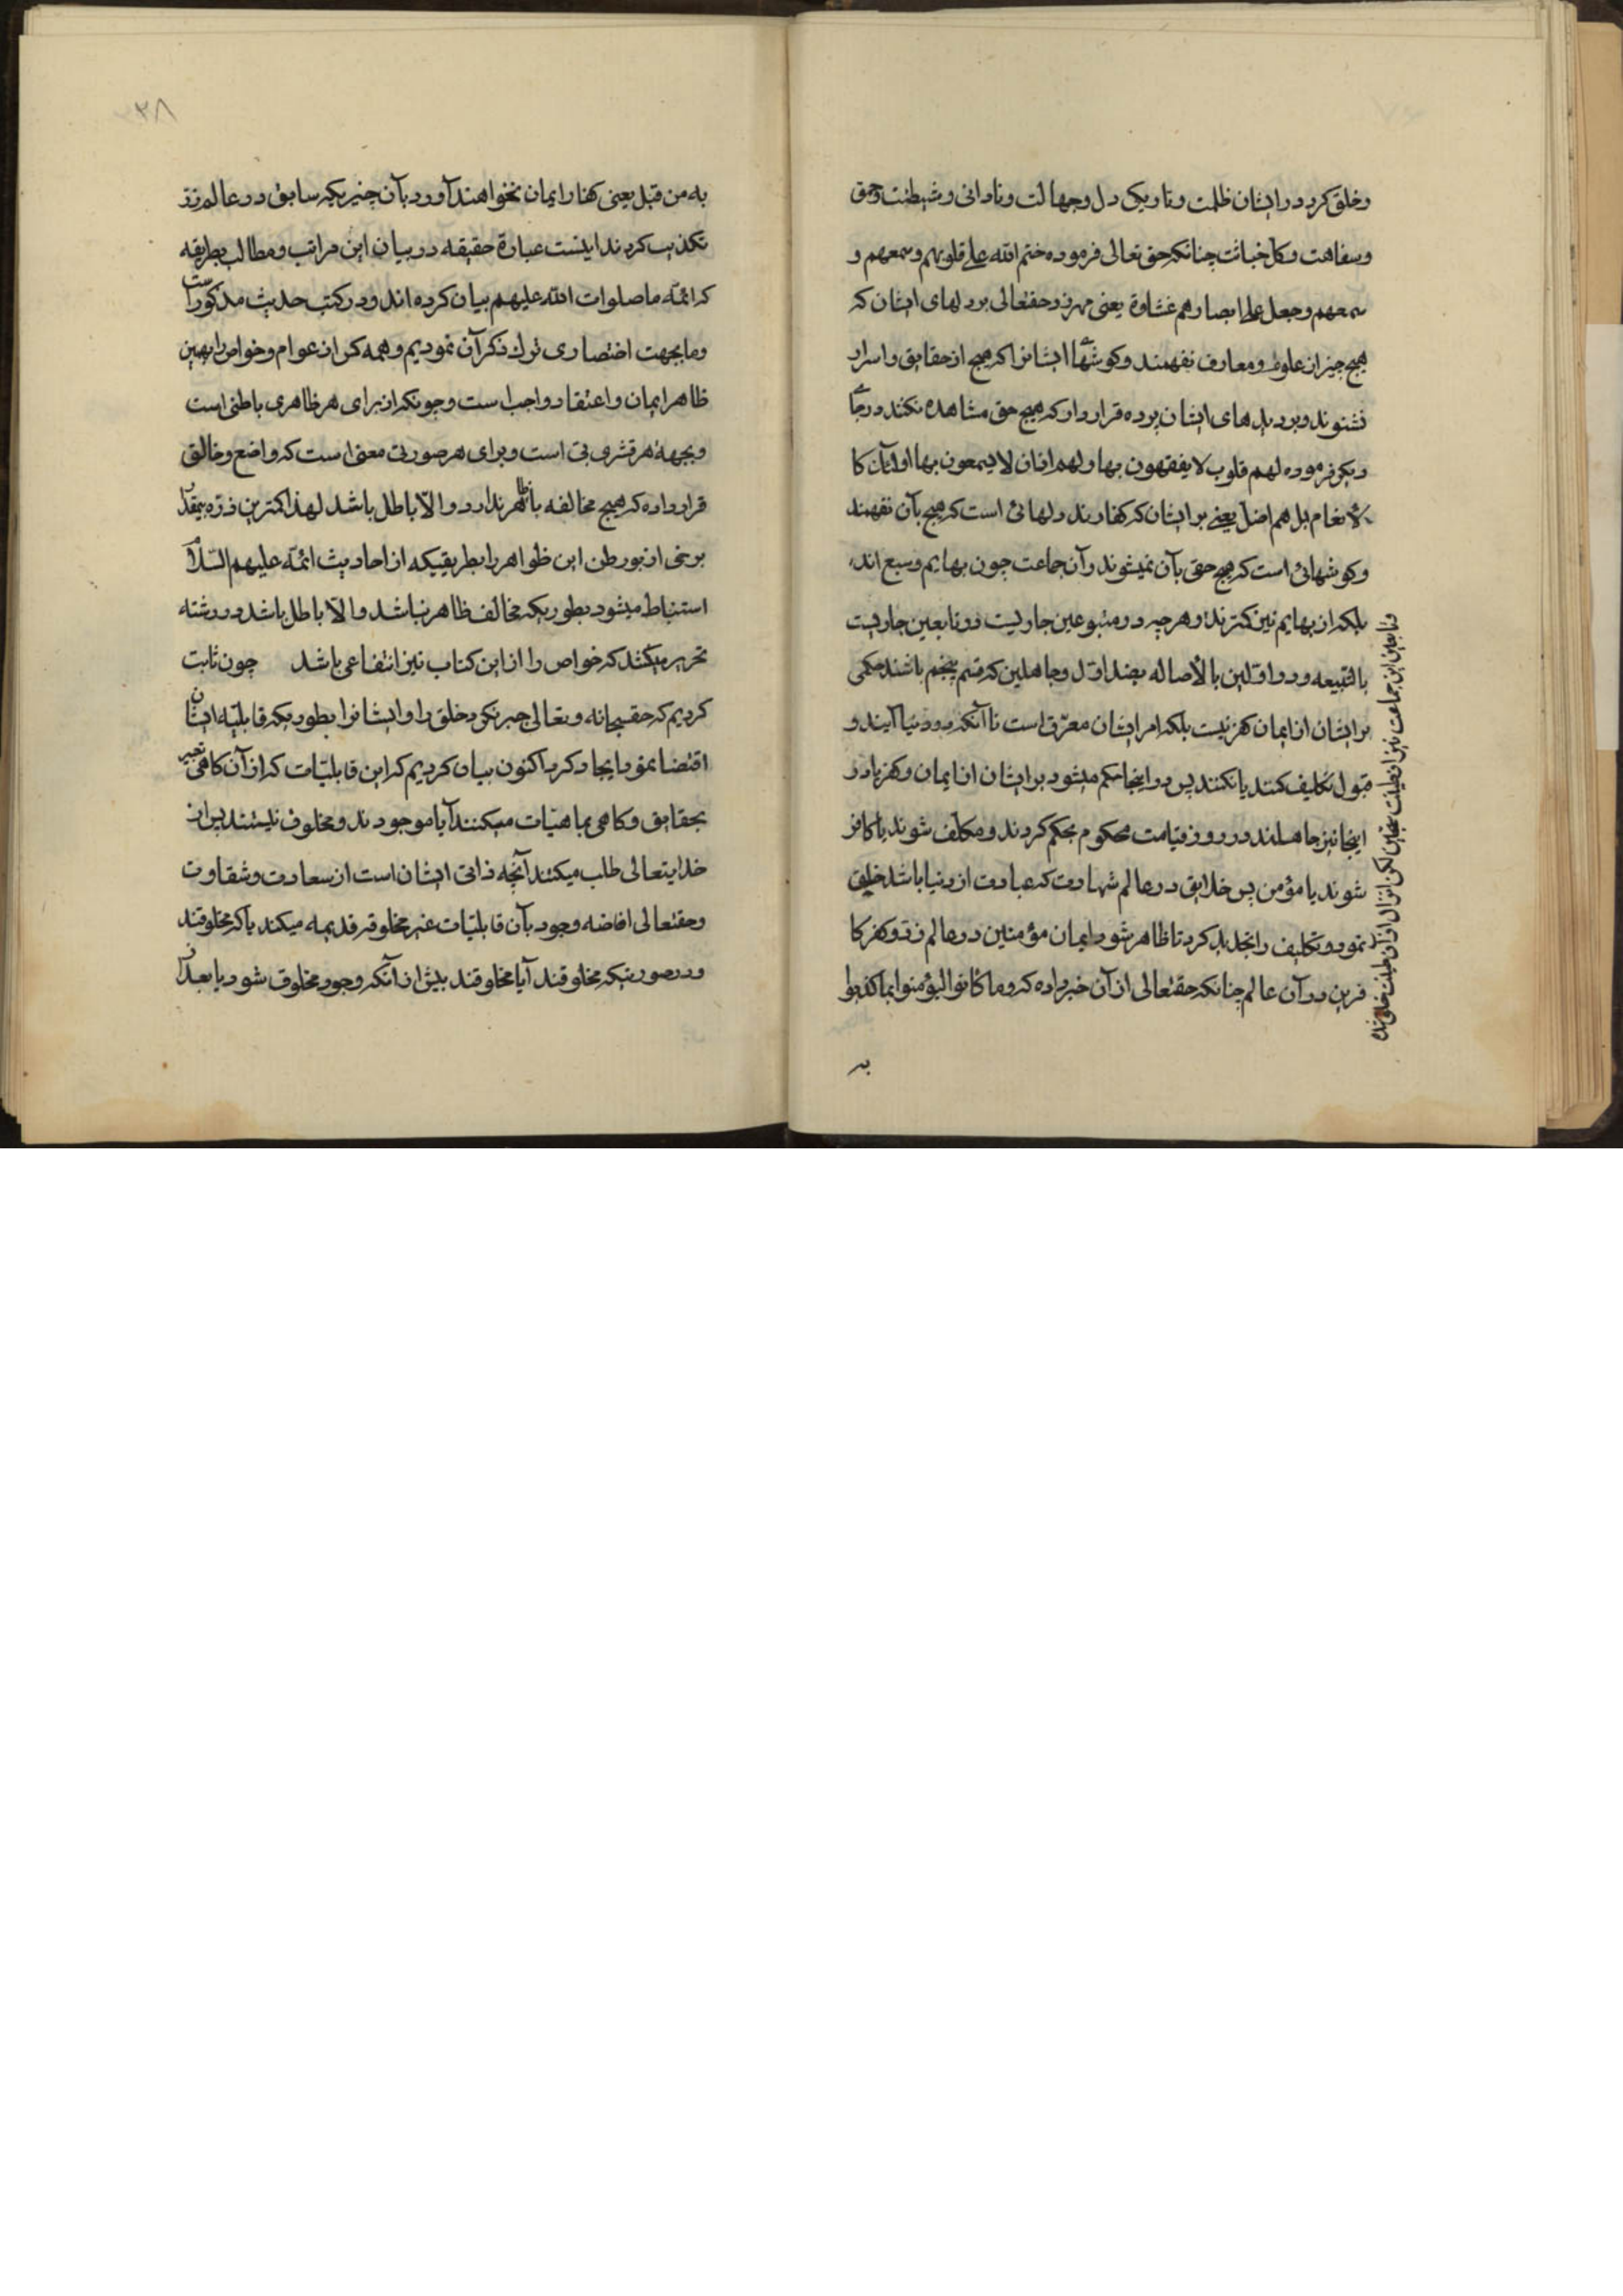 وخلق کرد در ایشان ظلمت وتاریکی دل وجهالت ونادانی وشیطنت وحمق
وسفاهت وکل خباثت چنانکه حق تعالی فرموده ختم الله علی قلوبهم وسمعهم و
سمعهم وجعل علی ابصارهم غشاوة یعنی مهر زد حقتعالی بر دلهای ایشان که
هیچ چیز از علوم ومعارف نفهمند وکوشهای ایشانرا که هیچ از حقایق واسرار
نشنوند وبر دیدهای ایشان پرده قرار داد که هیچ حق مشاهده نکنند در جای
دیکر فرموده لهم قلوب لا یفقهون بها ولهم اذان لا یسمعون بها اولئک کا
لأنعام بل هم اضل یعنی بر ایشان که کفارند دلهائی است که هیچ بآن نفهمند
وکوشهائی است که هیچ حق بآن نمیشوند وآن جماعت چون بهایم وسبع اند
بلکه از بهایم نیز کمترند وهر چه در متبوعین جاریست در تابعین جاریست
بالتبیعه ودر اولین بالأصاله بضد اول وجاهلین که قسم پنجم باشند حکمی
بر ایشان از ایمان کفر نیست بلکه امر ایشان معوق است تا آنکه در دنیا آیند و
قبول تکلیف کنند یا نکنند پس در اینجا حکم میشود بر ایشان از ایمان وکفر یا در
اینجا نیز جاهلند در روز قیامت محکوم بحکم کردند ومکلف شوند یا کافر
شوند یا مؤمن پس خلایق در عالم شهادت که عبادت از دنیا باشد خلق
نمود وتکلیف را تجدید کرد تا ظاهر شود ایمان مؤمنین در عالم ذر وکفر کا
فرین در آن عالم چنانکه حقتعالی از آن خبر داده که وما کانوا لیؤمنوا بما کذبوا
وتابعین این جماعت نیز از طینت سجین لکن انزال از آن طینت خلق شده
به
۳۸
به من قبل یعنی کفار ایمان نخواهند آورد بآن چیزیکه سابق در عالم ذر
تکذیب کردند اینست عبارة حقیقه در بیان این مراتب ومطالب بطریقه
که ائمّه ما صلوات الله علیهم بیان کرده اند ودر کتب حدیث مذکور است
وما بجهت اختصاری ترک ذکر آن نمودیم وهمه کس از عوام وخواص را بهمین
ظاهر ایمان واعتقاد واجب است وچونکه از برای هر ظاهری باطنی است
وبجهة هر قشری بی است وبرای هر صورتی معنی است که واضع وخالق
قرار داده که هیچ مخالفه با ظاهر ندارد والّا باطل باشد لهذا کمترین ذرّه بیمقدار
برخی از بورطن این ظواهر را بطریقیکه از احادیث ائمّه علیهم السّلام
استنباط میشود بطوریکه مخالف ظاهر نباشد والّا باطل باشد در رشته
تحریر میکشد که خواص را از این کتاب نیز انتفاعی باشد چون ثابت
کردیم که حقسبحانه وتعالی جبر نکرد خلق را وایشانرا بطوریکه قابلیّه ایشان
اقتضا نمود ایجاد کرد اکنون بیان کردیم که این قابلیّات که از آن کاهی تعبیر
بحقایق وکاهی بماهیّات میکنند آیا موجودند ومخلوق نیستند پس از
خدایتعالی طلب میکنند آنچه ذاتی ایشان است از سعادت وشقاوت
وحقتعالی افاضه وجود بآن قابلیّات غیر مخلوقه قدیمه میکند یا که مخلوقند
ودر صورتیکه مخلوقند آیا مخلوقند بیش از آنکه وجود مخلوق شود یا بعد از